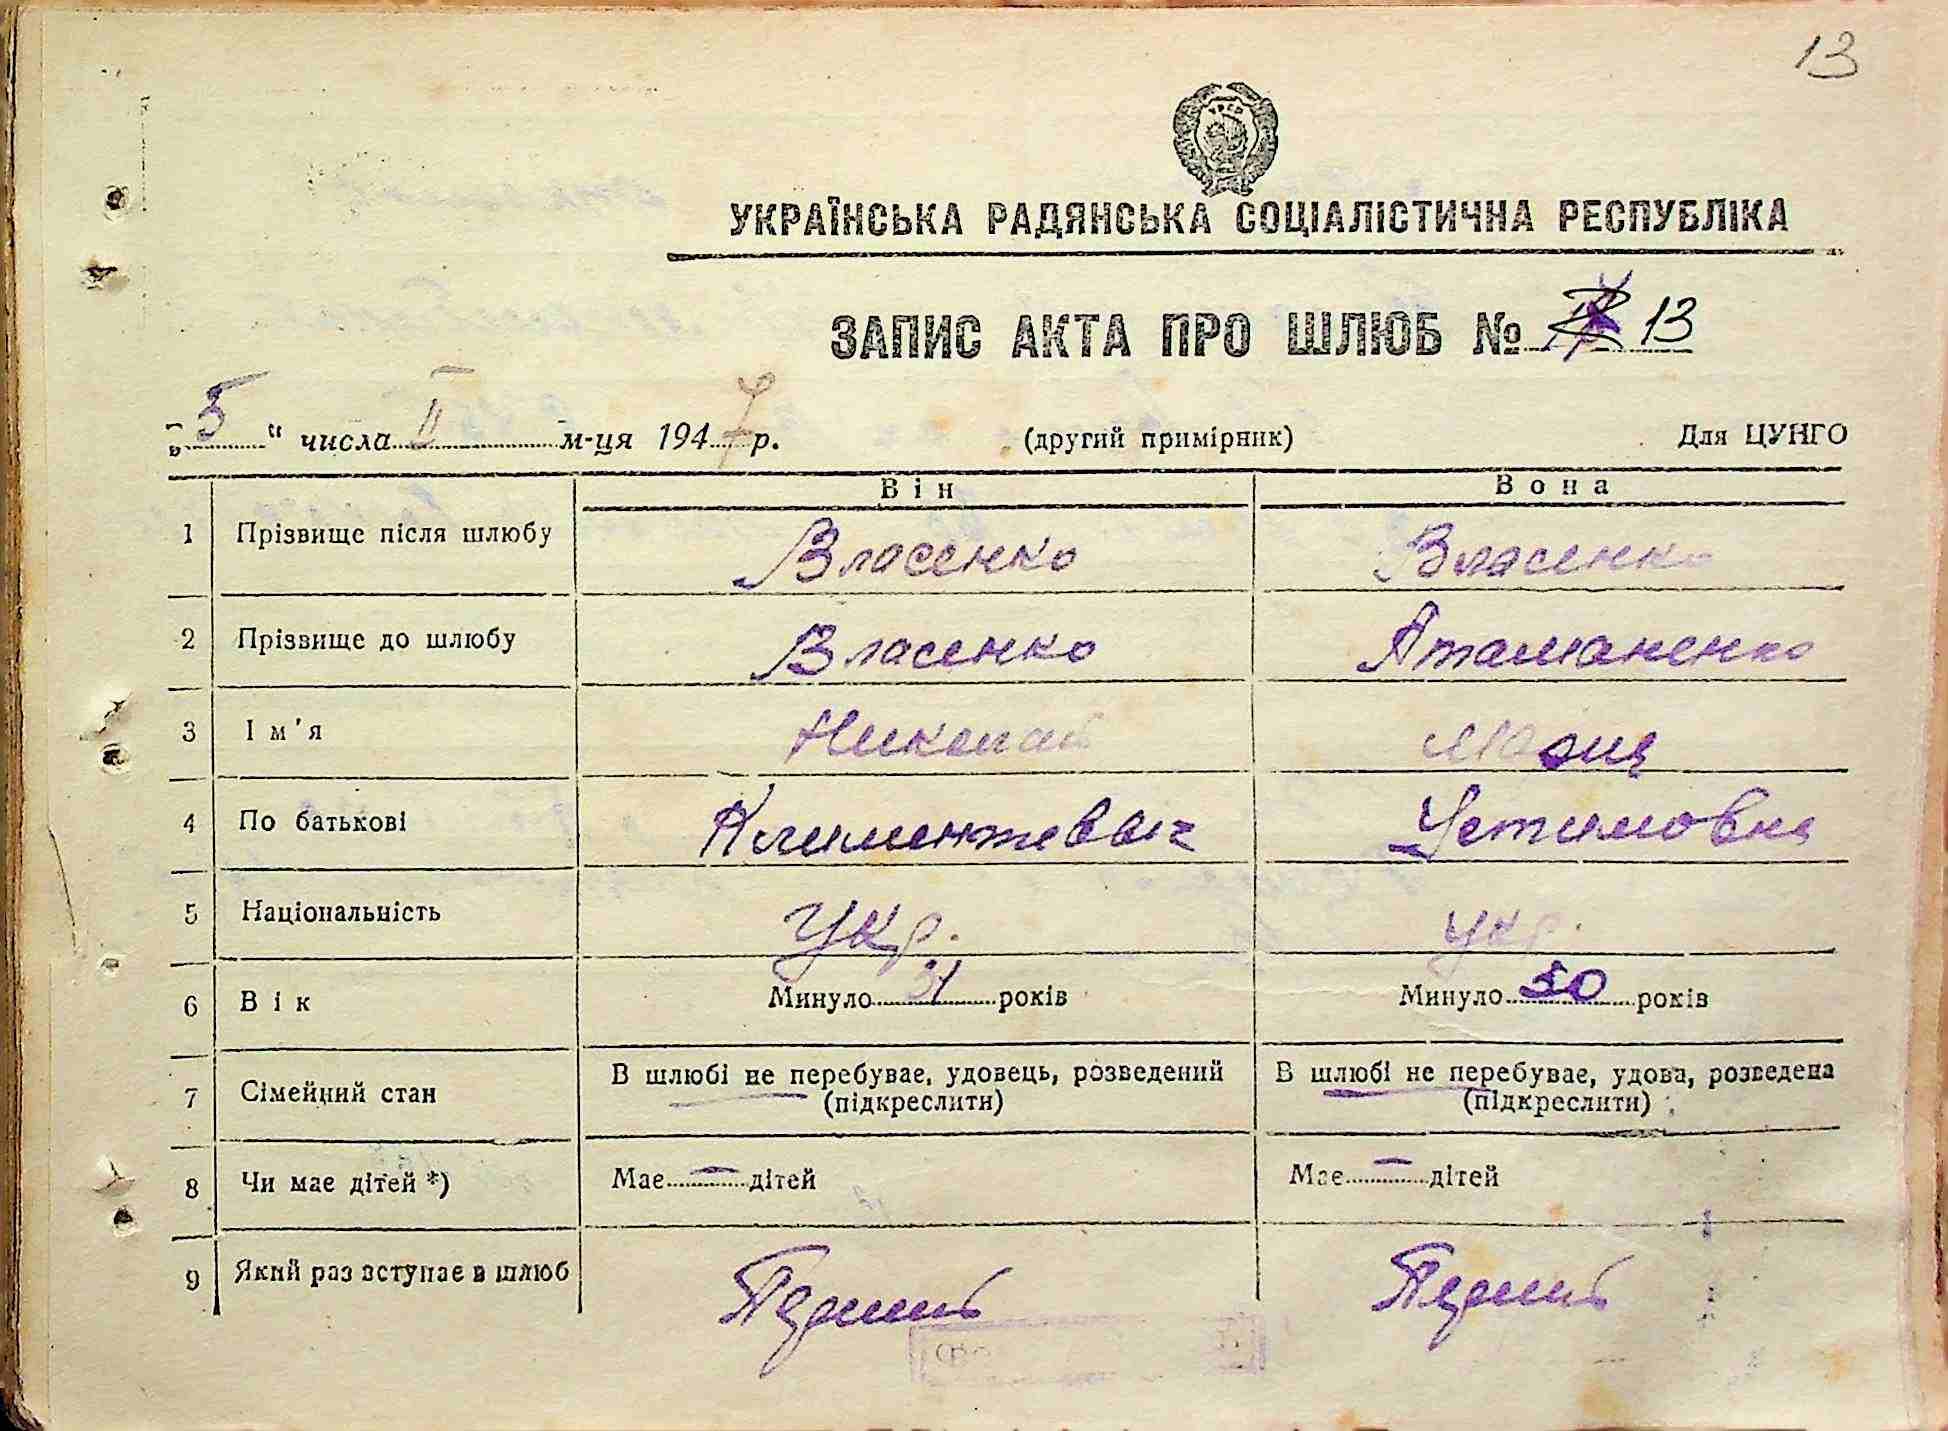 13
УКРАЇНСЬКА РАДЯНСЬКА СОЦІАЛІСТИЧНА РЕСПУБЛІКА
ЗАПИС АКТА ПРО ШЛЮБ № 13
„5“ числа II м-ця 1947 р. (другий примірник) Для ЦУНГО
Він Вона
1 Прізвище після шлюбу Власенко Власенко
2 Прізвище до шлюбу Власенко Атаманенко
3 Ім'я Николай
4 По батькові Климентевич Устимовна
5 Національність Укр. укр.
6 Вік Минуло 31 років Минуло 30 років
7 Сімейний стан В шлюбі не перебуває, удовець, розведений В шлюбі не перебуває, удова, розведена
(підкреслити) (підкреслити)
8 Чи має дітей *) Має — дітей Має — дітей
9 Який раз вступає в шлюб Перший Перший